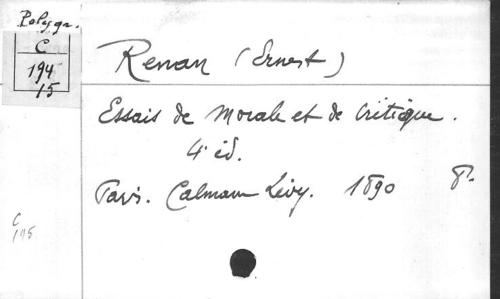 Polygr.
C
194
15
Renan (Ernest)
Essais de Morale et de Critique.
4e éd.
Paris. Calmann Lévy. 1890 8°.
C